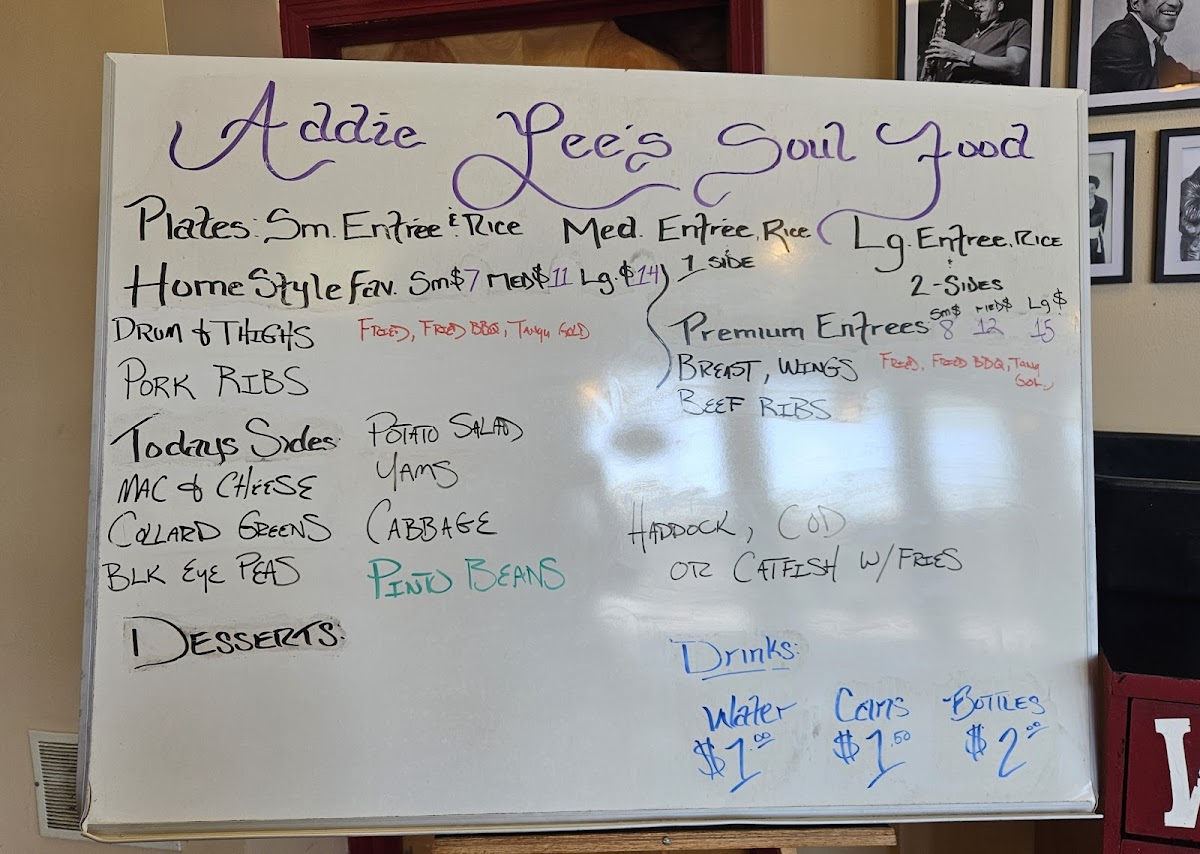 Addie Lee's Soul Food
Plates: Sm. Entrée & Rice Med. Entrée, Rice Lg. Entree, Rice
1 SIDE
+
2-SIDES
Home Style Fav. Sm$7 MED$11 Lg. $14
DRUM & THIGHS FRIED, FRIED BBQ, TANGY GOLD
PORK RIBS
Premium Entrees Sm$ 8 MED$ 12 Lg $ 15
BREAST, WINGS FRIED, FRIED BBQ, TANG
GOL,
BEEF RIBS
Todays Sides: POTATO SALAD
MAC & CHEESE YAMS
COLLARD GREENS CABBAGE
BLK EYE PEAS PINTO BEANS
HADDOCK, COD
OR CATFISH W/FRIES
DESSERTS:
Drinks:
Water Cans BOTTLES
$1.00 $1.50 $2.00
W